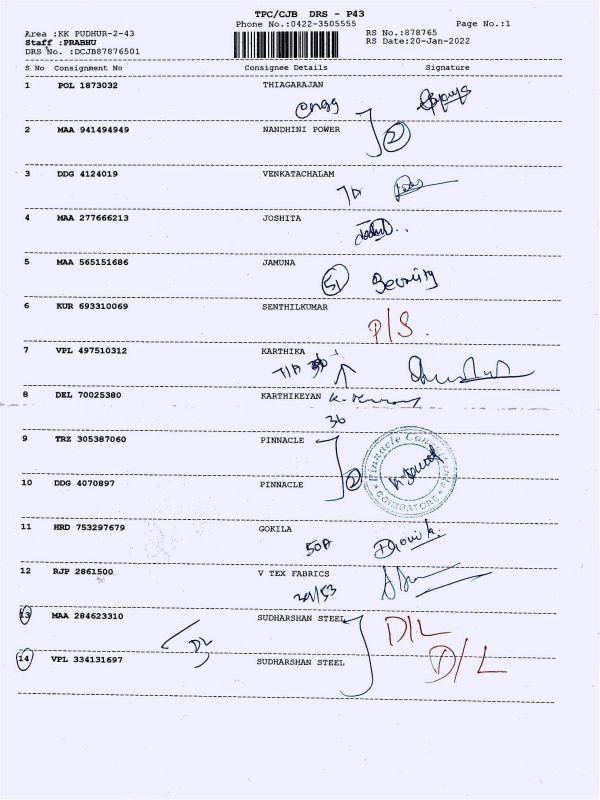 TPC/CJB DRS - P43
Phone No.:0422-3505555 Page No.:1
Area :KK PUDHUR-2-43 RS No.:878765
Staff :PRABHU RS Date:20-Jan-2022
DRS No. :DCJB87876501
S No Consignment No Consignee Details Signature
1 POL 1873032 THIAGARAJAN
2 MAA 941494949 NANDHINI POWER
2
3 DDG 4124019 VENKATACHALAM
4 MAA 277666213 JOSHITA
5 MAA 565151686 JAMUNA
51 Security
6 KUR 693310069 SENTHILKUMAR
P/S.
7 VPL 497510312 KARTHIKA
8 DEL 70025380 KARTHIKEYAN
36
9 TRZ 305387060 PINNACLE
Pinnacle
2
COIMBATORE
10 DDG 4070897 PINNACLE
11 HRD 753297679 GOKILA
50A
12 RJP 2861500 V TEX FABRICS
13 MAA 284623310 SUDHARSHAN STEEL
D/L
DL
14 VPL 334131697 SUDHARSHAN STEEL
D/L